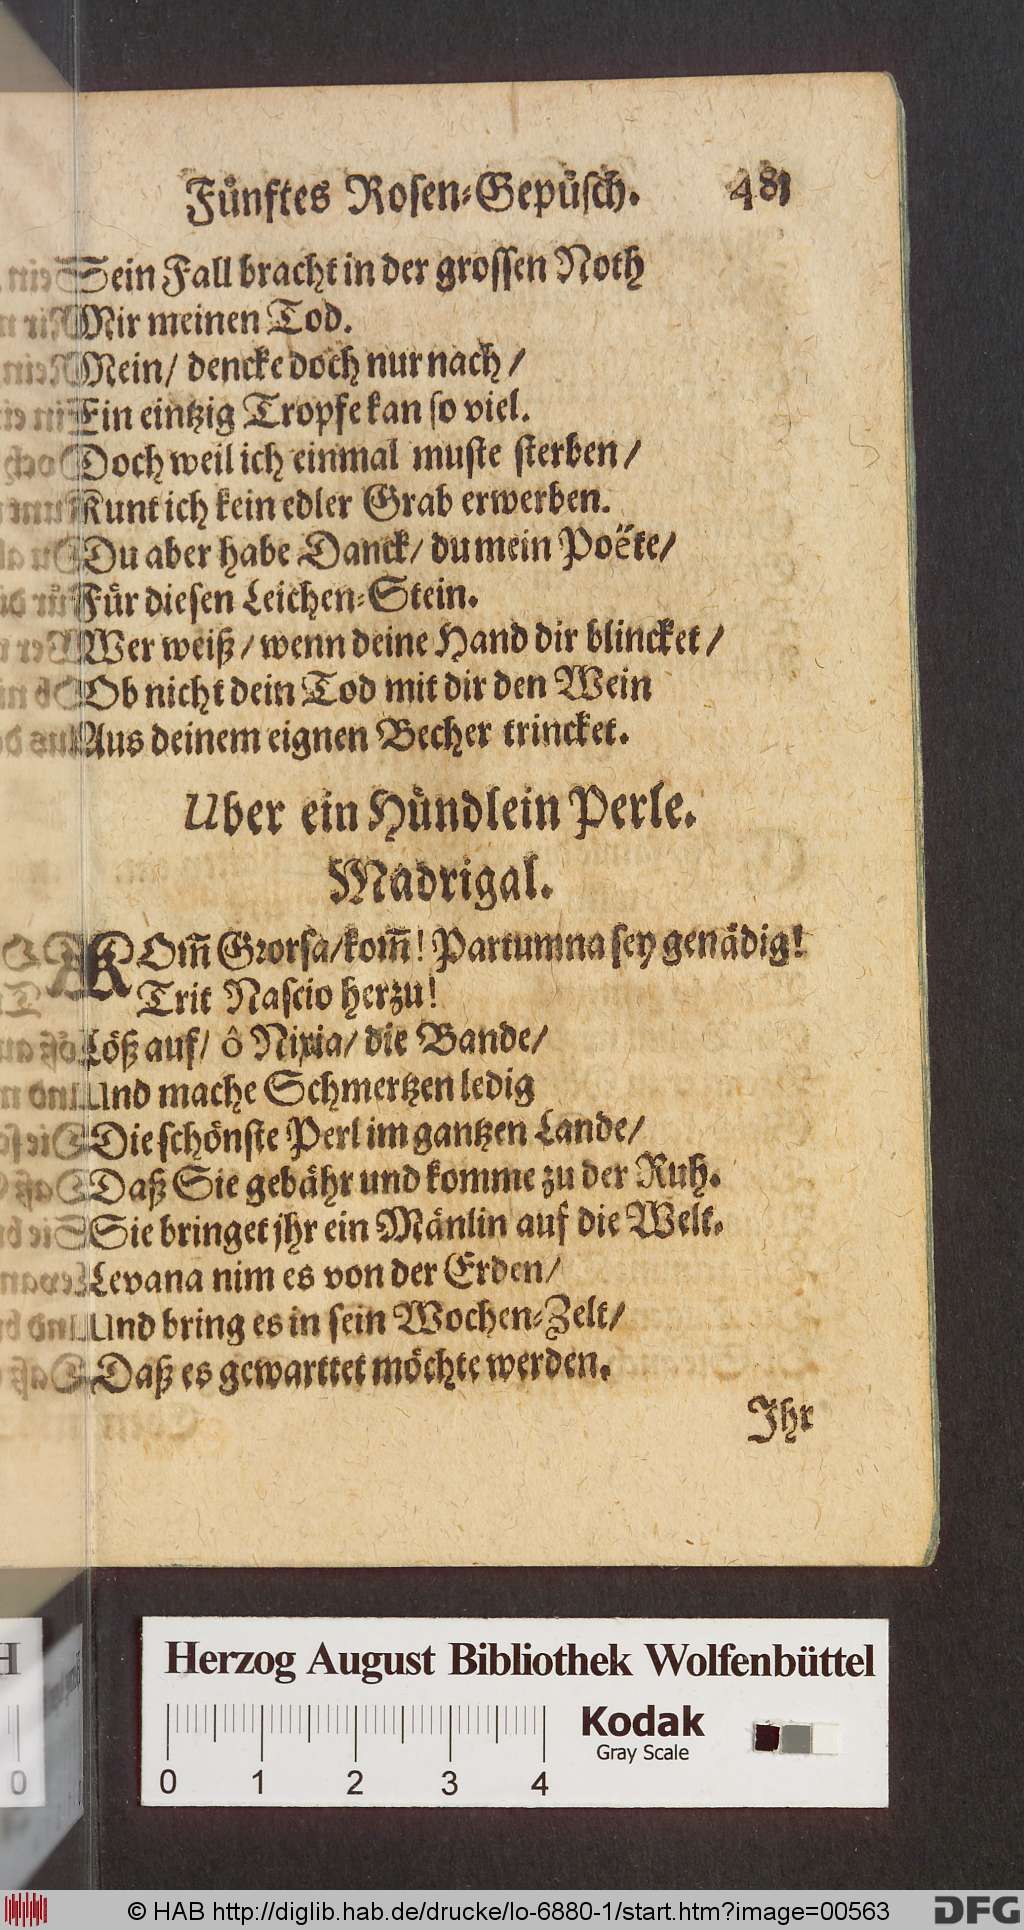 Fünftes Rosen-Gepüsch. 481
Sein Fall bracht in der grossen Noth
Mir meinen Tod.
Mein/ dencke doch nur nach/
Ein eintzig Tropfe kan so viel.
Doch weil ich einmal muste sterben/
Kunt ich kein edler Grab erwerben.
Du aber habe Danck/ du mein Poëte/
Für diesen Leichen-Stein.
Wer weiß/ wenn deine Hand dir blincket/
Ob nicht dein Tod mit dir den Wein
Aus deinem eignen Becher trincket.
Uber ein Hündlein Perle.
Madrigal.
KOm̃ Grorsa/kom̃! Partumna sey genädig!
Trit Nascio herzu!
Löß auf/ ô Nixia/ die Bande/
Und mache Schmertzen ledig
Die schönste Perl im gantzen Lande/
Daß Sie gebähr und komme zu der Ruh.
Sie bringet jhr ein Mänlin auf die Welt.
Levana nim es von der Erden/
Und bring es in sein Wochen-Zelt/
Daß es gewarttet möchte werden.
Ihr
Herzog August Bibliothek Wolfenbüttel
Kodak
Gray Scale
0 1 2 3 4
0
© HAB http://diglib.hab.de/drucke/lo-6880-1/start.htm?image=00563
DFG